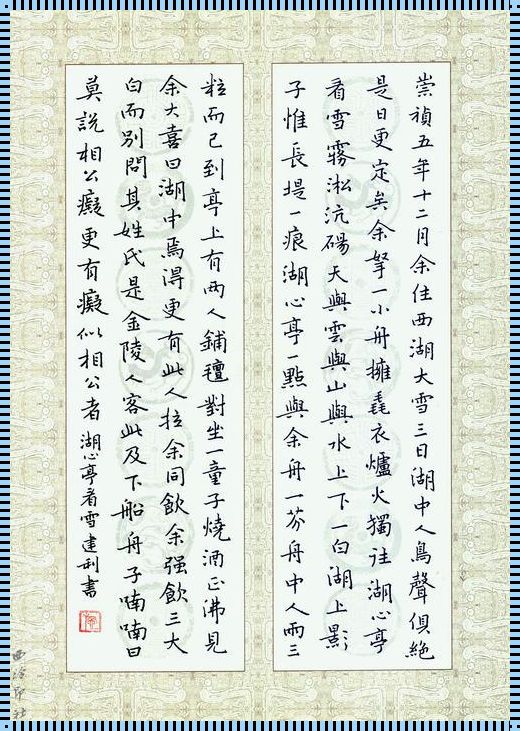 崇禎五年十二月余住西湖大雪三日湖中人鳥聲俱絶
是日更定矣余拏一小舟擁毳衣爐火獨往湖心亭
看雪霧淞沆碭天與雲與山與水上下一白湖上影
子惟長堤一痕湖心亭一點與余舟一芥舟中人兩三
粒而已到亭上有兩人鋪氈對坐一童子燒酒正沸見
余大喜曰湖中焉得更有此人拉余同飲余强飲三大
白而別問其姓氏是金陵人客此及下船舟子喃喃曰
莫說相公癡更有癡似相公者 湖心亭看雪 建利書
西泠印社